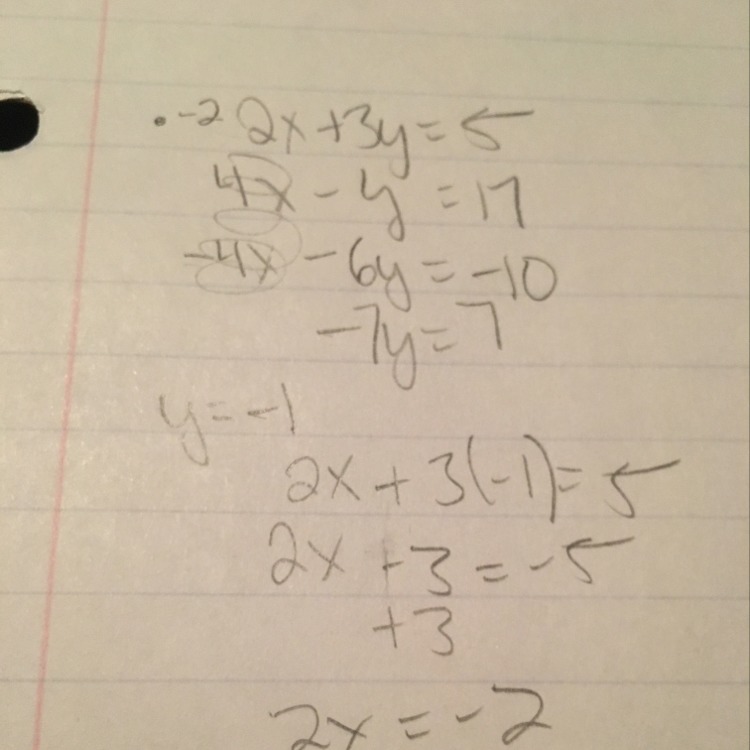 • -2 2x + 3y = 5
4x - y = 17
-4x - 6y = -10
-7y = 7
y = -1
2x + 3(-1) = 5
2x - 3 = -5
+3
2x = -2